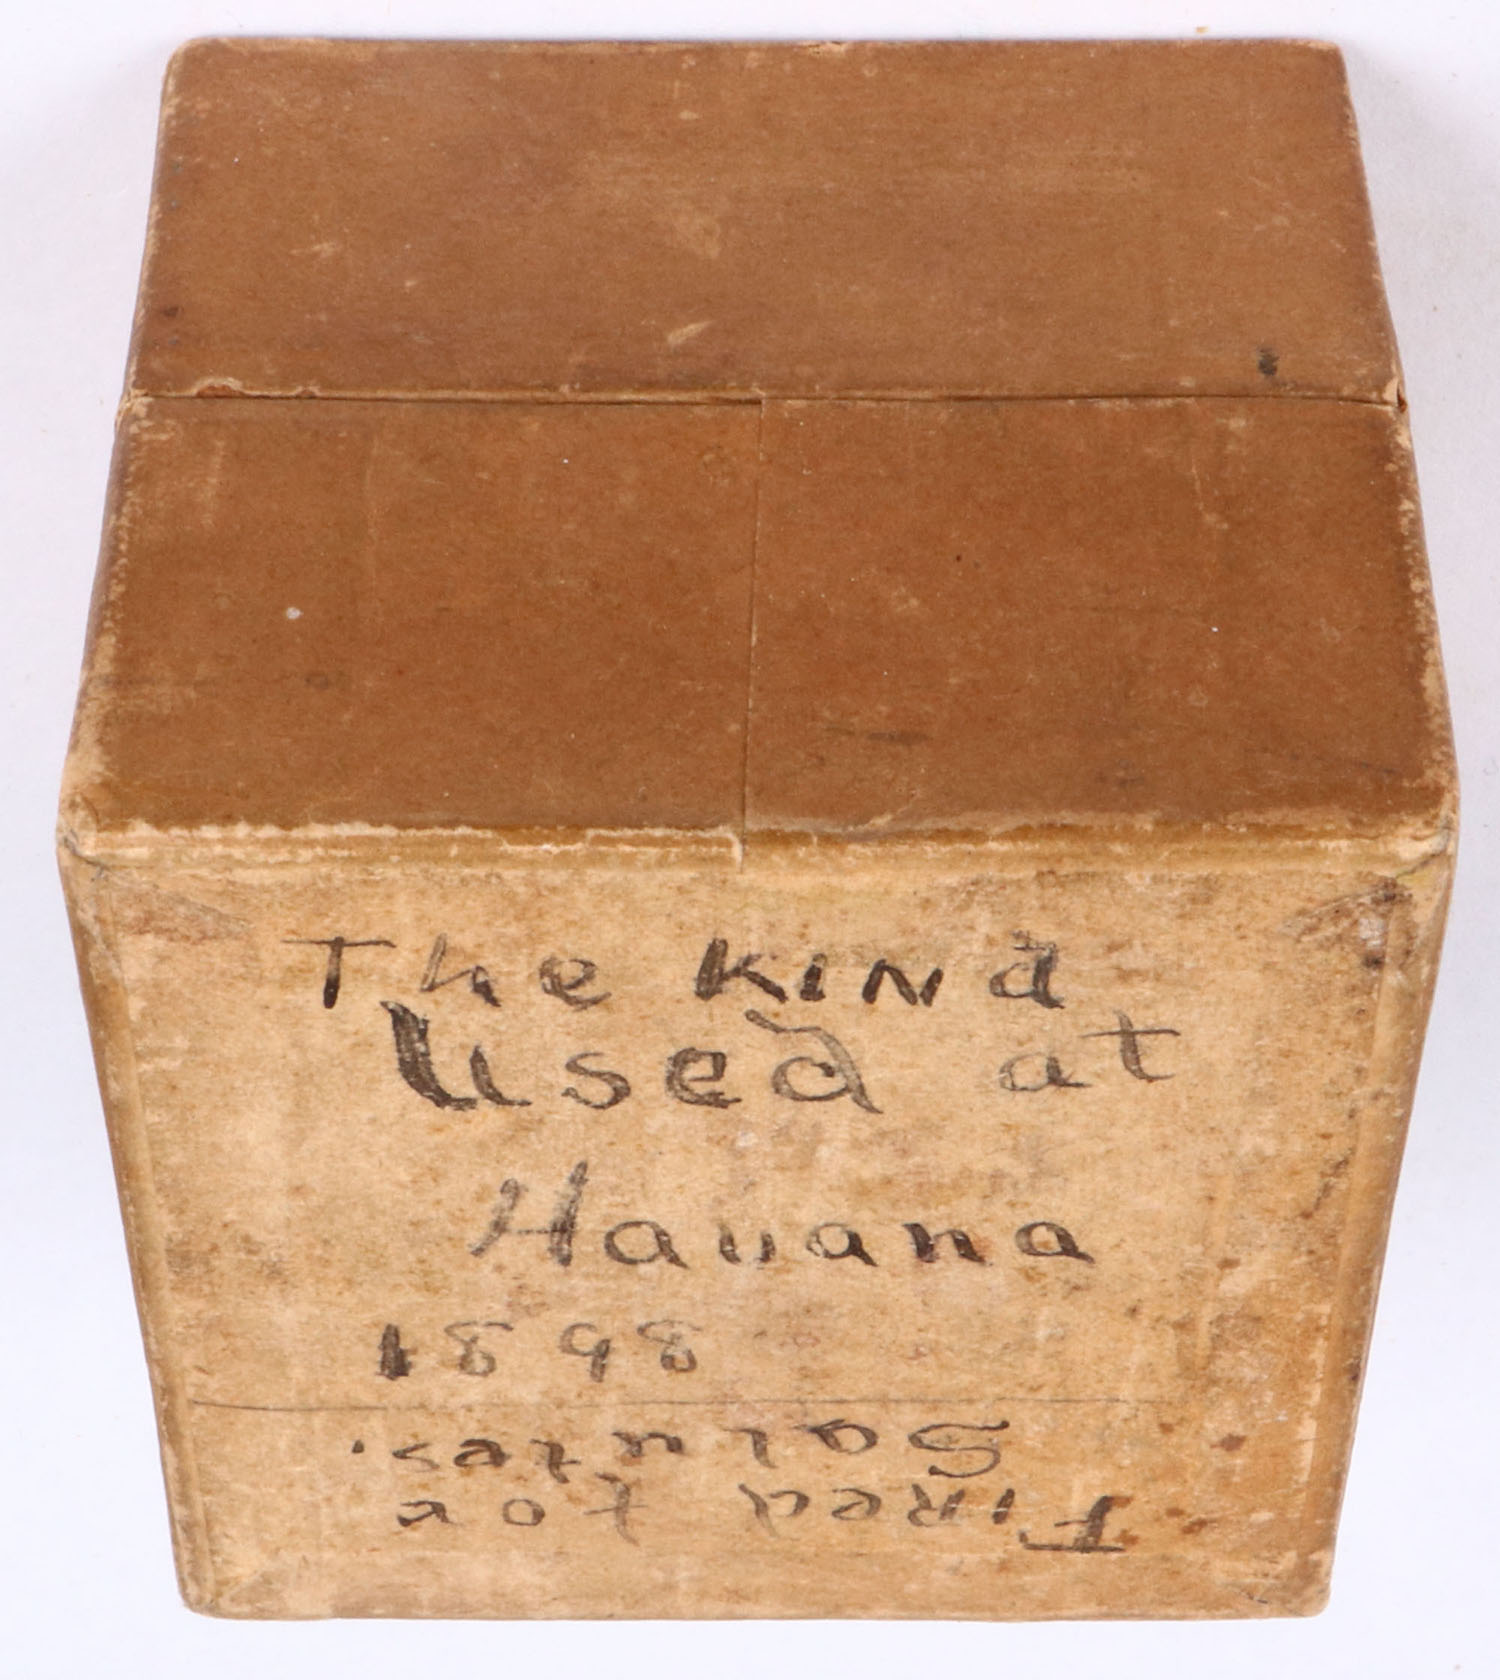 The KINd
Used at
Havana
1898
Fired for
Salutes.